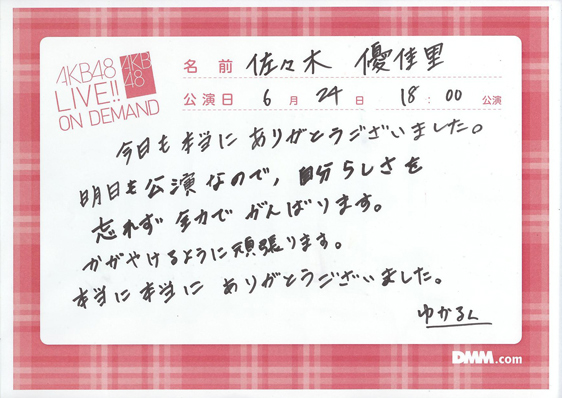 AKB48
LIVE!!
ON DEMAND
AKB
48
名前 佐々木 優佳里
公演日 6月24日 18:00公演
今日も本当にありがとうございました。
明日も公演なので、自分らしさを
忘れず全力でがんばります。
かがやけるように頑張ります。
本当に本当にありがとうございました。
ゆかるん
DMM.com